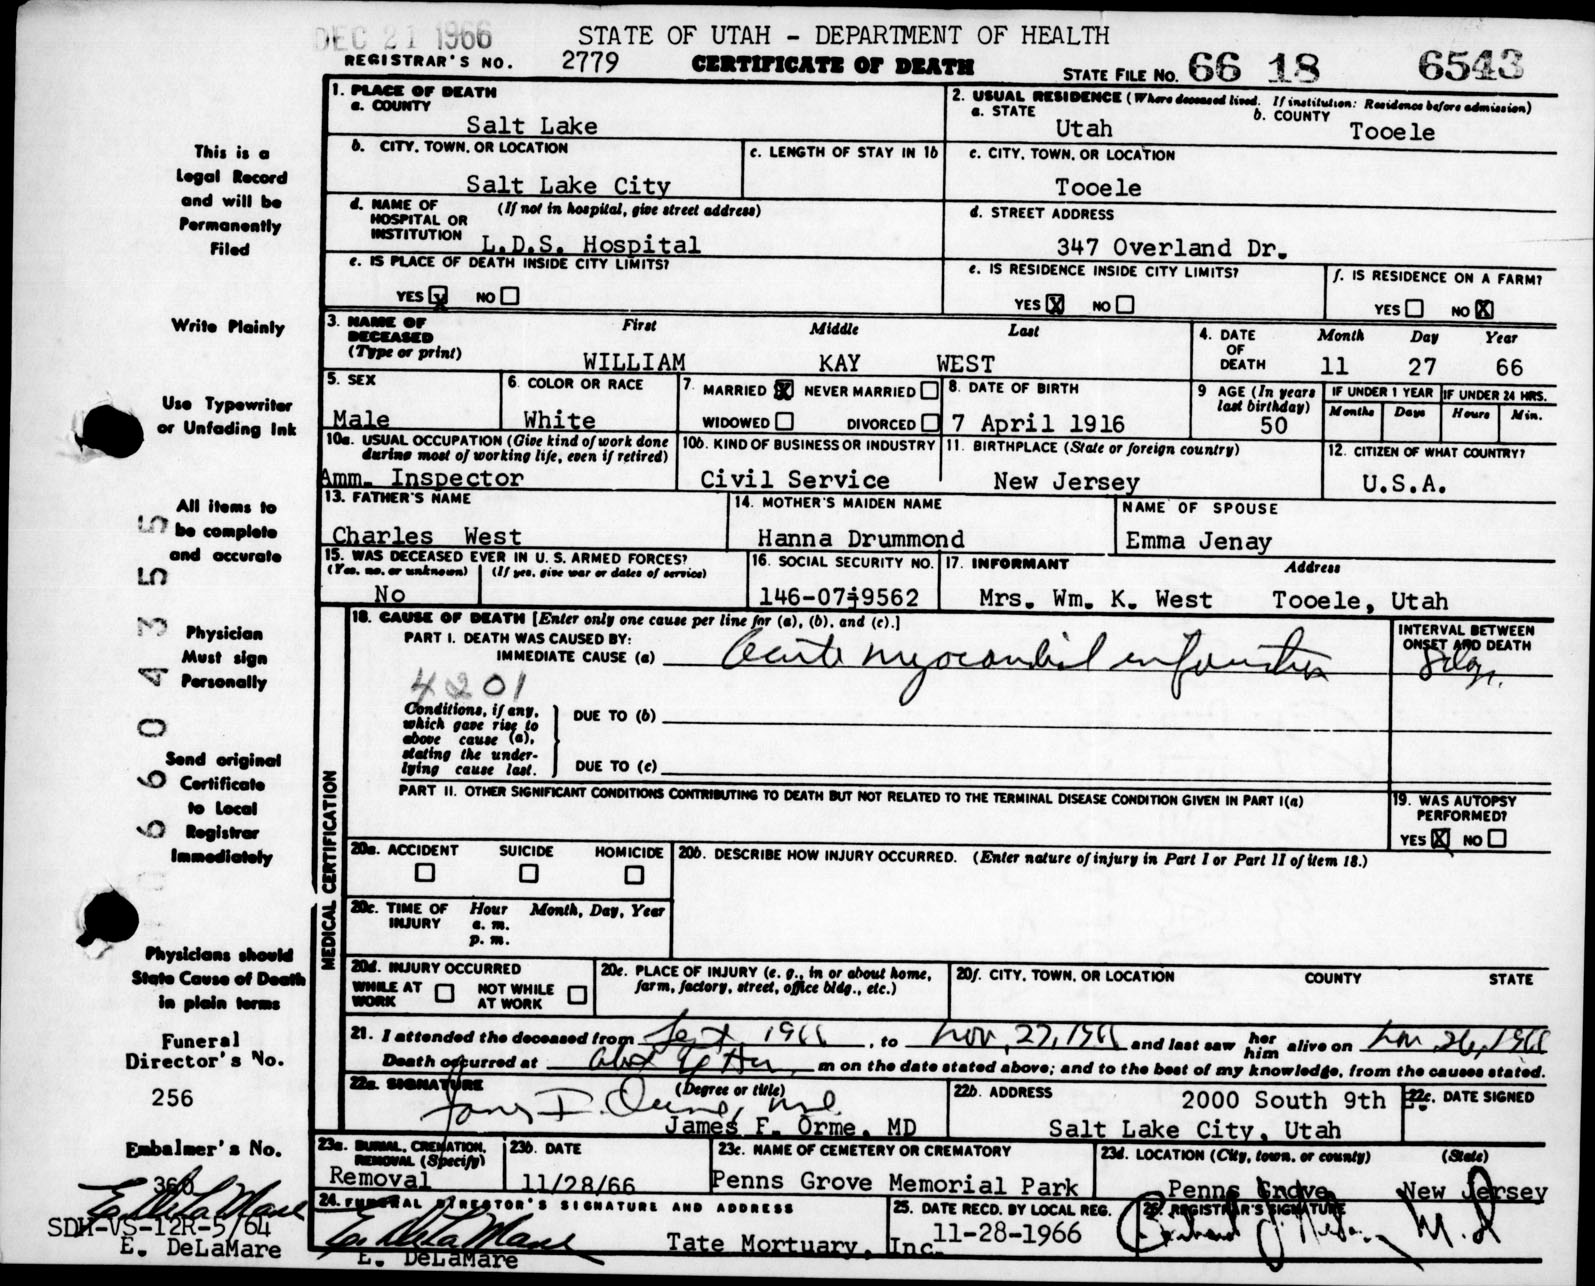 DEC 21 1966
STATE OF UTAH - DEPARTMENT OF HEALTH
REGISTRAR'S NO. 2779 CERTIFICATE OF DEATH STATE FILE NO. 66 18 6543
This is a
Legal Record
and will be
Permanently
Filed
Write Plainly
Use Typewriter
or Unfading Ink
All items to
be complete
and accurate
Physician
Must sign
Personally
Send original
Certificate
to Local
Registrar
Immediately
Physicians should
State Cause of Death
in plain terms
Funeral
Director's No.
256
Embalmer's No.
366
E. DeLaMare
SDH-VS-12R-5/64
E. DeLaMare
0 6 6 0 4 3 5 5
1. PLACE OF DEATH
a. COUNTY
Salt Lake
b. CITY, TOWN, OR LOCATION
Salt Lake City
c. LENGTH OF STAY IN 1b
d. NAME OF HOSPITAL OR INSTITUTION (If not in hospital, give street address)
L.D.S. Hospital
e. IS PLACE OF DEATH INSIDE CITY LIMITS?
YES X NO
2. USUAL RESIDENCE (Where deceased lived. If institution: Residence before admission)
a. STATE b. COUNTY
Utah Tooele
c. CITY, TOWN, OR LOCATION
Tooele
d. STREET ADDRESS
347 Overland Dr.
e. IS RESIDENCE INSIDE CITY LIMITS?
YES X NO
f. IS RESIDENCE ON A FARM?
YES NO X
3. NAME OF DECEASED (Type or print) First Middle Last
WILLIAM KAY WEST
4. DATE OF DEATH Month Day Year
11 27 66
5. SEX
Male
6. COLOR OR RACE
White
7. MARRIED X NEVER MARRIED
WIDOWED DIVORCED
8. DATE OF BIRTH
7 April 1916
9 AGE (In years last birthday)
50
IF UNDER 1 YEAR
Months Days
IF UNDER 24 HRS.
Hours Min.
10a. USUAL OCCUPATION (Give kind of work done during most of working life, even if retired)
Amm. Inspector
10b. KIND OF BUSINESS OR INDUSTRY
Civil Service
11. BIRTHPLACE (State or foreign country)
New Jersey
12. CITIZEN OF WHAT COUNTRY?
U.S.A.
13. FATHER'S NAME
Charles West
14. MOTHER'S MAIDEN NAME
Hanna Drummond
NAME OF SPOUSE
Emma Jenay
15. WAS DECEASED EVER IN U. S. ARMED FORCES?
(Yes, no, or unknown) (If yes, give war or dates of service)
No
16. SOCIAL SECURITY NO.
146-07-9562
17. INFORMANT Address
Mrs. Wm. K. West Tooele, Utah
MEDICAL CERTIFICATION
18. CAUSE OF DEATH [Enter only one cause per line for (a), (b), and (c).]
PART I. DEATH WAS CAUSED BY:
IMMEDIATE CAUSE (a) Acute myocardial infarction
INTERVAL BETWEEN ONSET AND DEATH
4201
Conditions, if any, which gave rise to above cause (a), stating the underlying cause last.
DUE TO (b)
DUE TO (c)
PART II. OTHER SIGNIFICANT CONDITIONS CONTRIBUTING TO DEATH BUT NOT RELATED TO THE TERMINAL DISEASE CONDITION GIVEN IN PART I(a)
19. WAS AUTOPSY PERFORMED?
YES X NO
20a. ACCIDENT SUICIDE HOMICIDE
20b. DESCRIBE HOW INJURY OCCURRED. (Enter nature of injury in Part I or Part II of item 18.)
20c. TIME OF INJURY Hour Month, Day, Year
a. m.
p. m.
20d. INJURY OCCURRED
WHILE AT WORK NOT WHILE AT WORK
20e. PLACE OF INJURY (e. g., in or about home, farm, factory, street, office bldg., etc.)
20f. CITY, TOWN, OR LOCATION COUNTY STATE
21. I attended the deceased from Sept 1966, to Nov, 27, 1966 and last saw her him alive on Nov 26, 1966
Death occurred at m on the date stated above; and to the best of my knowledge, from the causes stated.
22a. SIGNATURE (Degree or title)
James F. Orme, MD
James F. Orme, MD
22b. ADDRESS
2000 South 9th E.
Salt Lake City, Utah
22c. DATE SIGNED
23a. BURIAL, CREMATION, REMOVAL (Specify)
Removal
23b. DATE
11/28/66
23c. NAME OF CEMETERY OR CREMATORY
Penns Grove Memorial Park
23d. LOCATION (City, town, or county) (State)
Penns Grove New Jersey
24. FUNERAL DIRECTOR'S SIGNATURE AND ADDRESS
E. DeLaMare
E. DeLaMare
Tate Mortuary, Inc.
25. DATE RECD. BY LOCAL REG.
11-28-1966
26. REGISTRAR'S SIGNATURE
M.D.